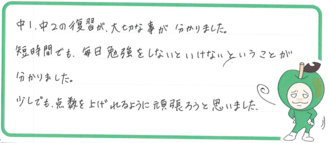 中1.中2の復習が、大切な事が 分かりました。
短時間でも、毎日勉強をしないといけないということが
分かりました。
少しでも、点数を上げれるように 頑張ろうと思いました。